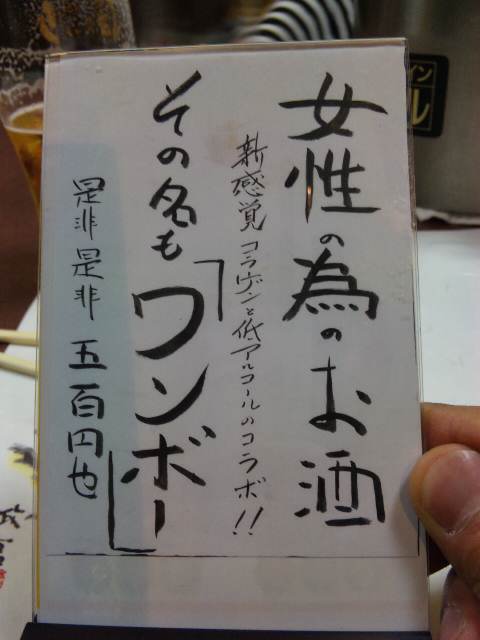 女性の為のお酒
新感覚 コラーゲンと低アルコールのコラボ!!
その名も「ワンボー」
是非是非 五百円也
イン
ル